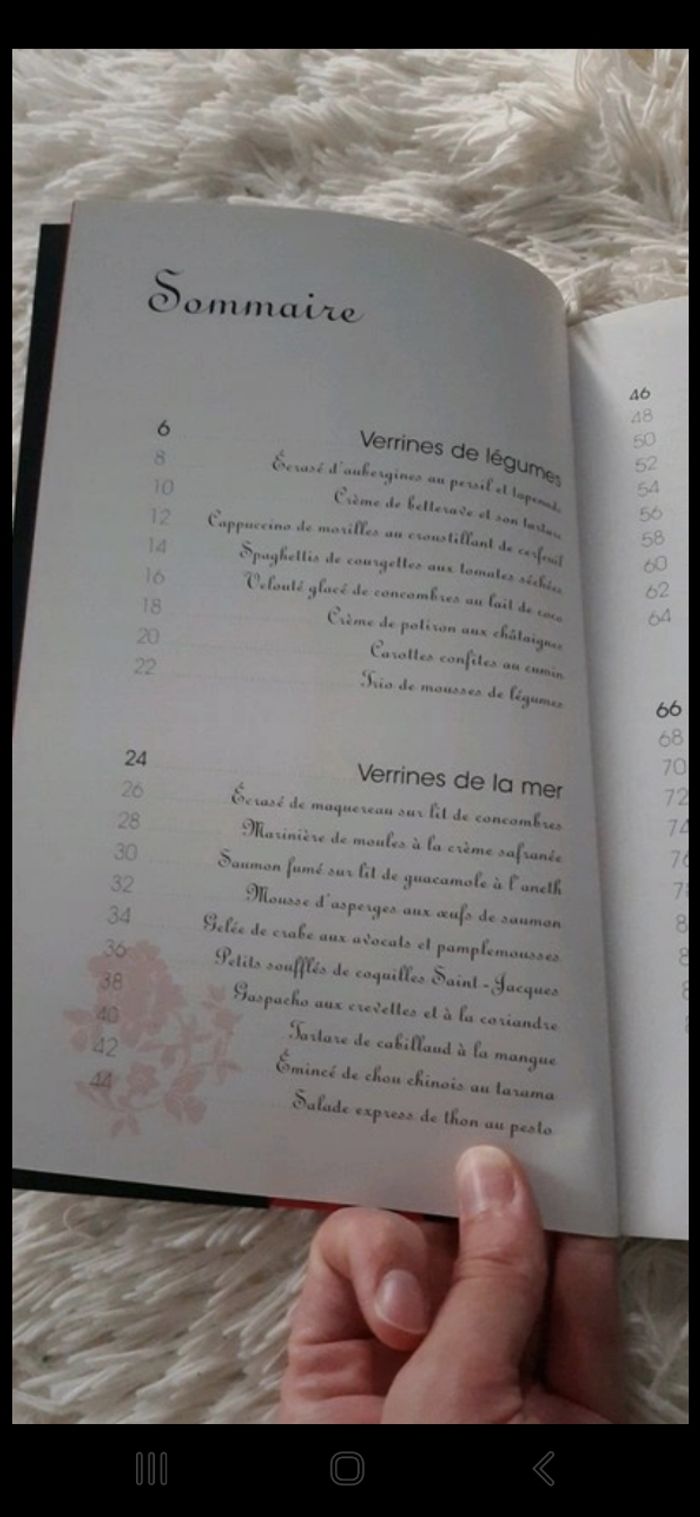 Sommaire
6 Verrines de légumes
8 Écrasé d'aubergines au persil et tapenade
10 Crème de betterave et son tartare
12 Cappuccino de morilles au croustillant de cerfeuil
14 Spaghettis de courgettes aux tomates séchées
16 Velouté glacé de concombres au lait de coco
18 Crème de potiron aux châtaignes
20 Carottes confites au cumin
22 Trio de mousses de légumes
24 Verrines de la mer
26 Écrasé de maquereau sur lit de concombres
28 Marinière de moules à la crème safranée
30 Saumon fumé sur lit de guacamole à l'aneth
32 Mousse d'asperges aux œufs de saumon
34 Gelée de crabe aux avocats et pamplemousses
36 Petits soufflés de coquilles Saint-Jacques
38 Gaspacho aux crevettes et à la coriandre
40 Tartare de cabillaud à la mangue
42 Émincé de chou chinois au tarama
44 Salade express de thon au pesto
46
48
50
52
54
56
58
60
62
64
66
68
70
72